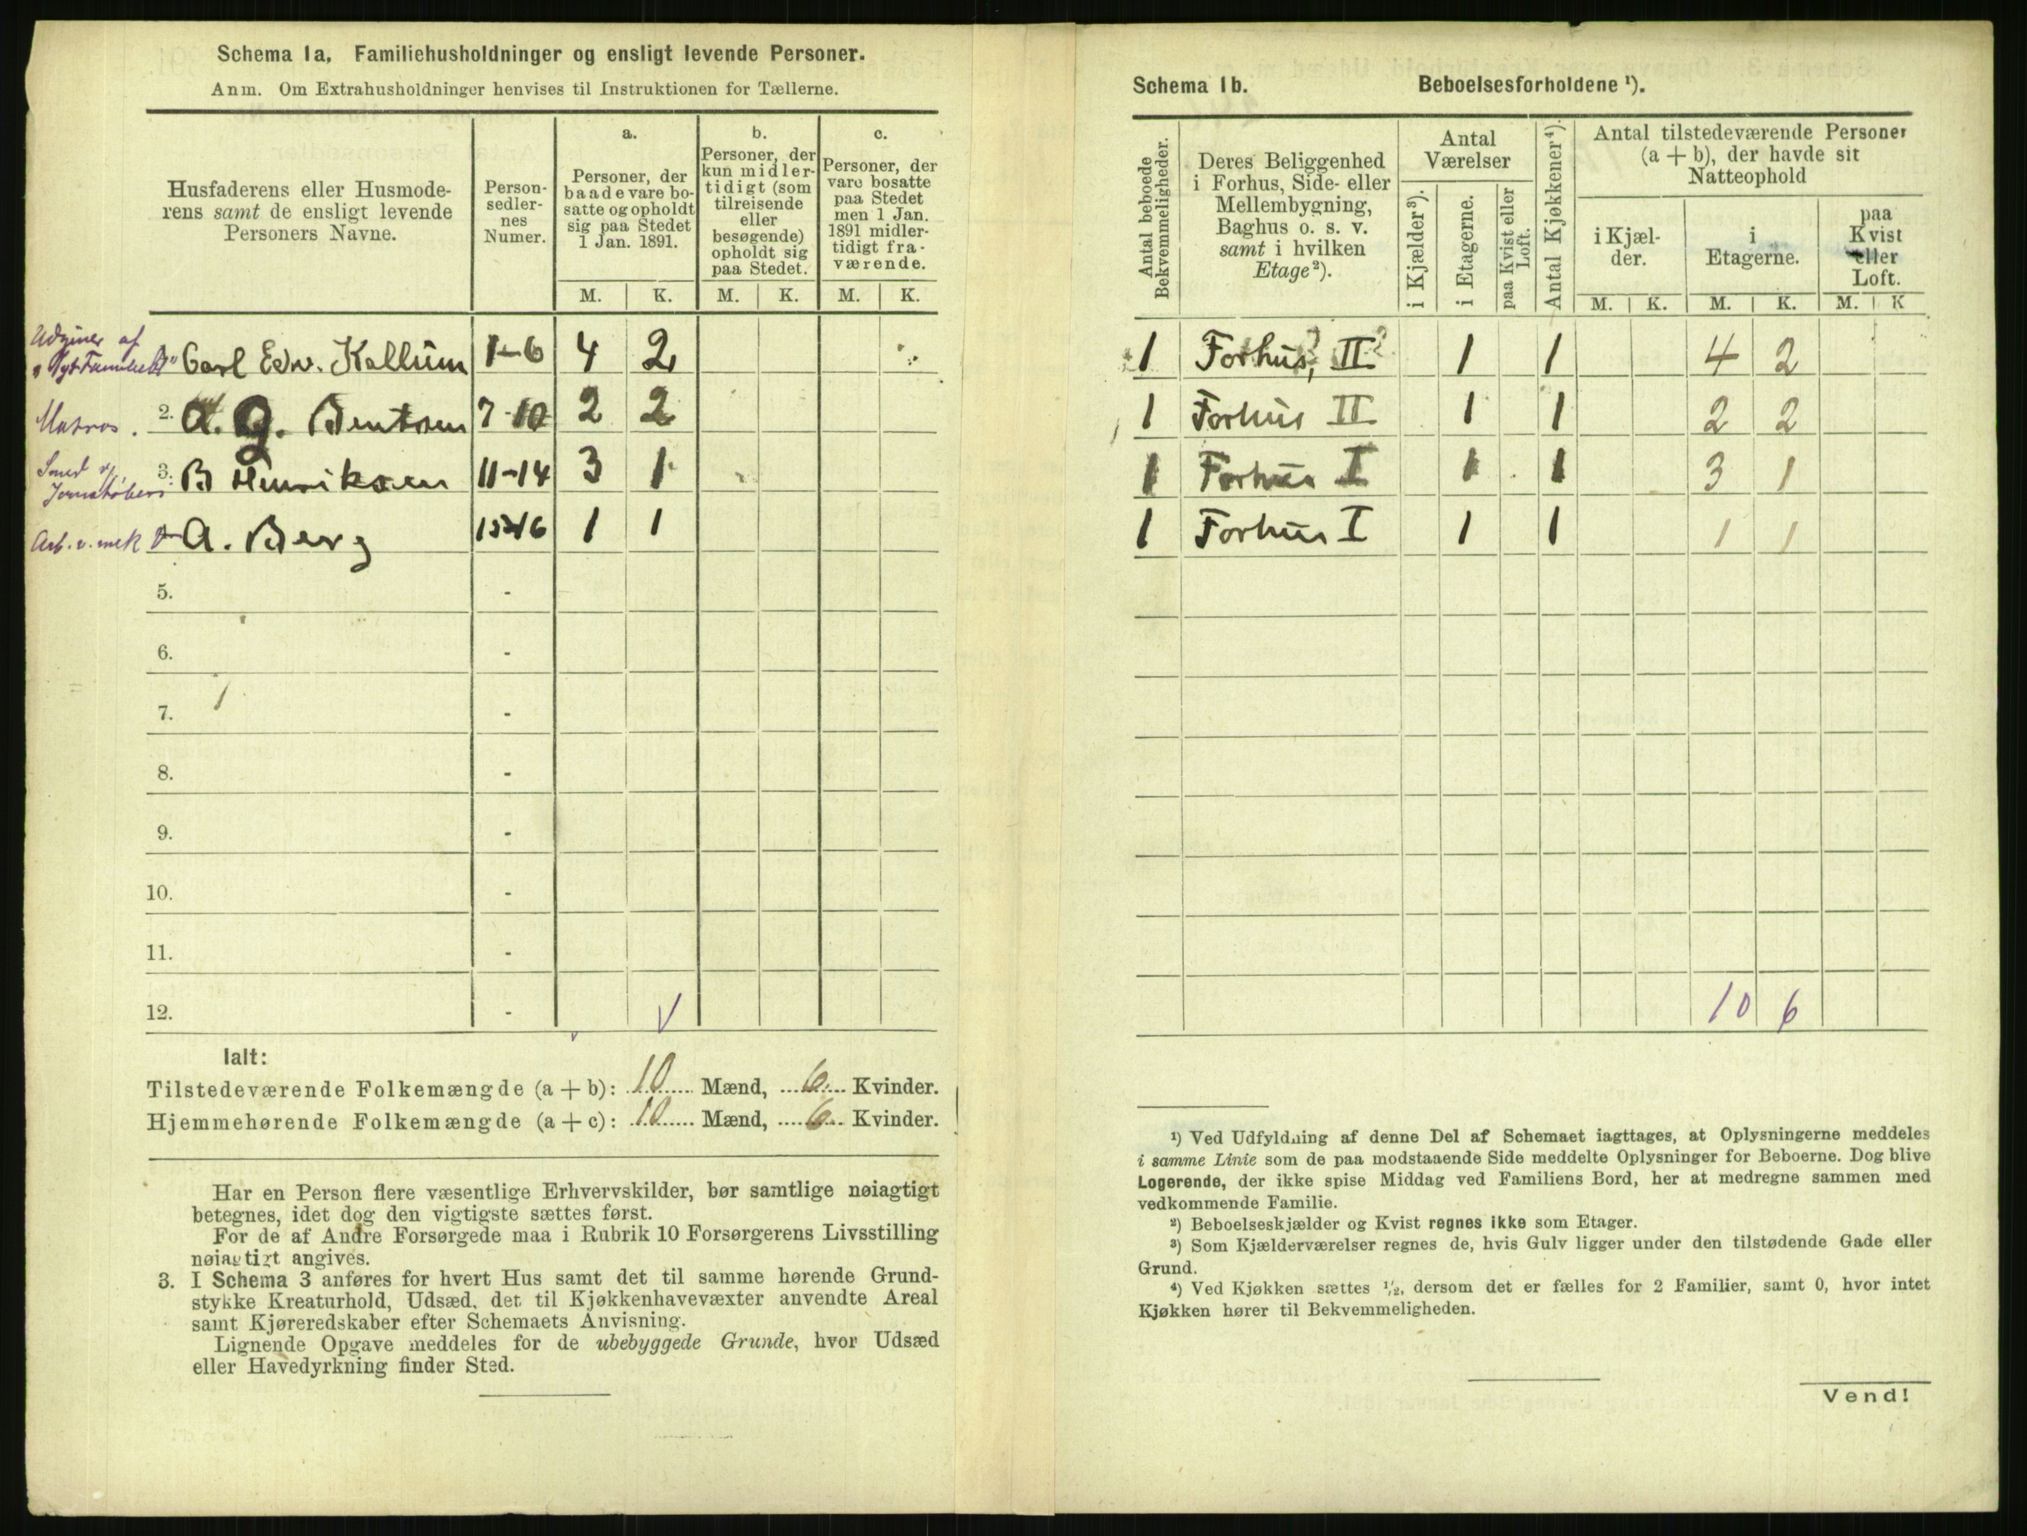 Schema 1a. Familiehusholdninger og ensligt levende Personer.
Anm. Om Extrahusholdninger henvises til Instruktionen for Tællerne.
Husfaderens eller Husmoderens samt de ensligt levende Personers Navne.
Personsedlernes Numer.
a. Personer, der baade vare bosatte og opholdt sig paa Stedet 1 Jan. 1891.
b. Personer, der kun midlertidigt (som tilreisende eller besøgende) opholdt sig paa Stedet.
c. Personer, der vare bosatte paa Stedet men 1 Jan. 1891 midlertidigt fraværende.
M. K. M. K. M. K.
Udgiver af
Carl Edv. Kallum 1-6 4 2
Matros. 2. A. G. Bentsen 7-10 2 2
Smed v/
3. B Henriksen 11-14 3 1
Arb. v. mek A. Berg 15-16 1 1
5. -
6. -
7. -
8. -
9. -
10. -
11. -
12. -
Ialt:
Tilstedeværende Folkemængde (a + b): 10 Mænd, 6 Kvinder.
Hjemmehørende Folkemængde (a + c): 10 Mænd, 6 Kvinder.
Har en Person flere væsentlige Erhvervskilder, bør samtlige nøiagtigt
betegnes, idet dog den vigtigste sættes først.
For de af Andre Forsørgede maa i Rubrik 10 Forsørgerens Livsstilling
nøiagtigt angives.
3. I Schema 3 anføres for hvert Hus samt det til samme hørende Grund-
stykke Kreaturhold, Udsæd, det til Kjøkkenhavevæxter anvendte Areal
samt Kjøreredskaber efter Schemaets Anvisning.
Lignende Opgave meddeles for de ubebyggede Grunde, hvor Udsæd
eller Havedyrkning finder Sted.
Schema 1b. Beboelsesforholdene ¹).
Antal beboede Bekvemmeligheder.
Deres Beliggenhed i Forhus, Side- eller Mellembygning, Baghus o. s. v. samt i hvilken Etage ²).
Antal Værelser
i Kjælder ³).
i Etagerne.
paa Kvist eller Loft.
Antal Kjøkkener ⁴).
Antal tilstedeværende Personer (a + b), der havde sit Natteophold
i Kjælder.
i Etagerne.
paa Kvist eller Loft.
M. K. M. K. M. K
1 Forhus, II ? 1 1 4 2
1 Forhus II 1 1 2 2
1 Forhus I 1 1 3 1
1 Forhus I 1 1 1 1
10 6
¹) Ved Udfyldning af denne Del af Schemaet iagttages, at Oplysningerne meddeles
i samme Linie som de paa modstaaende Side meddelte Oplysninger for Beboerne. Dog blive
Logerende, der ikke spise Middag ved Familiens Bord, her at medregne sammen med
vedkommende Familie.
²) Beboelseskjælder og Kvist regnes ikke som Etager.
³) Som Kjælderværelser regnes de, hvis Gulv ligger under den tilstødende Gade eller
Grund.
⁴) Ved Kjøkken sættes ½, dersom det er fælles for 2 Familier, samt 0, hvor intet
Kjøkken hører til Bekvemmeligheden.
Vend!